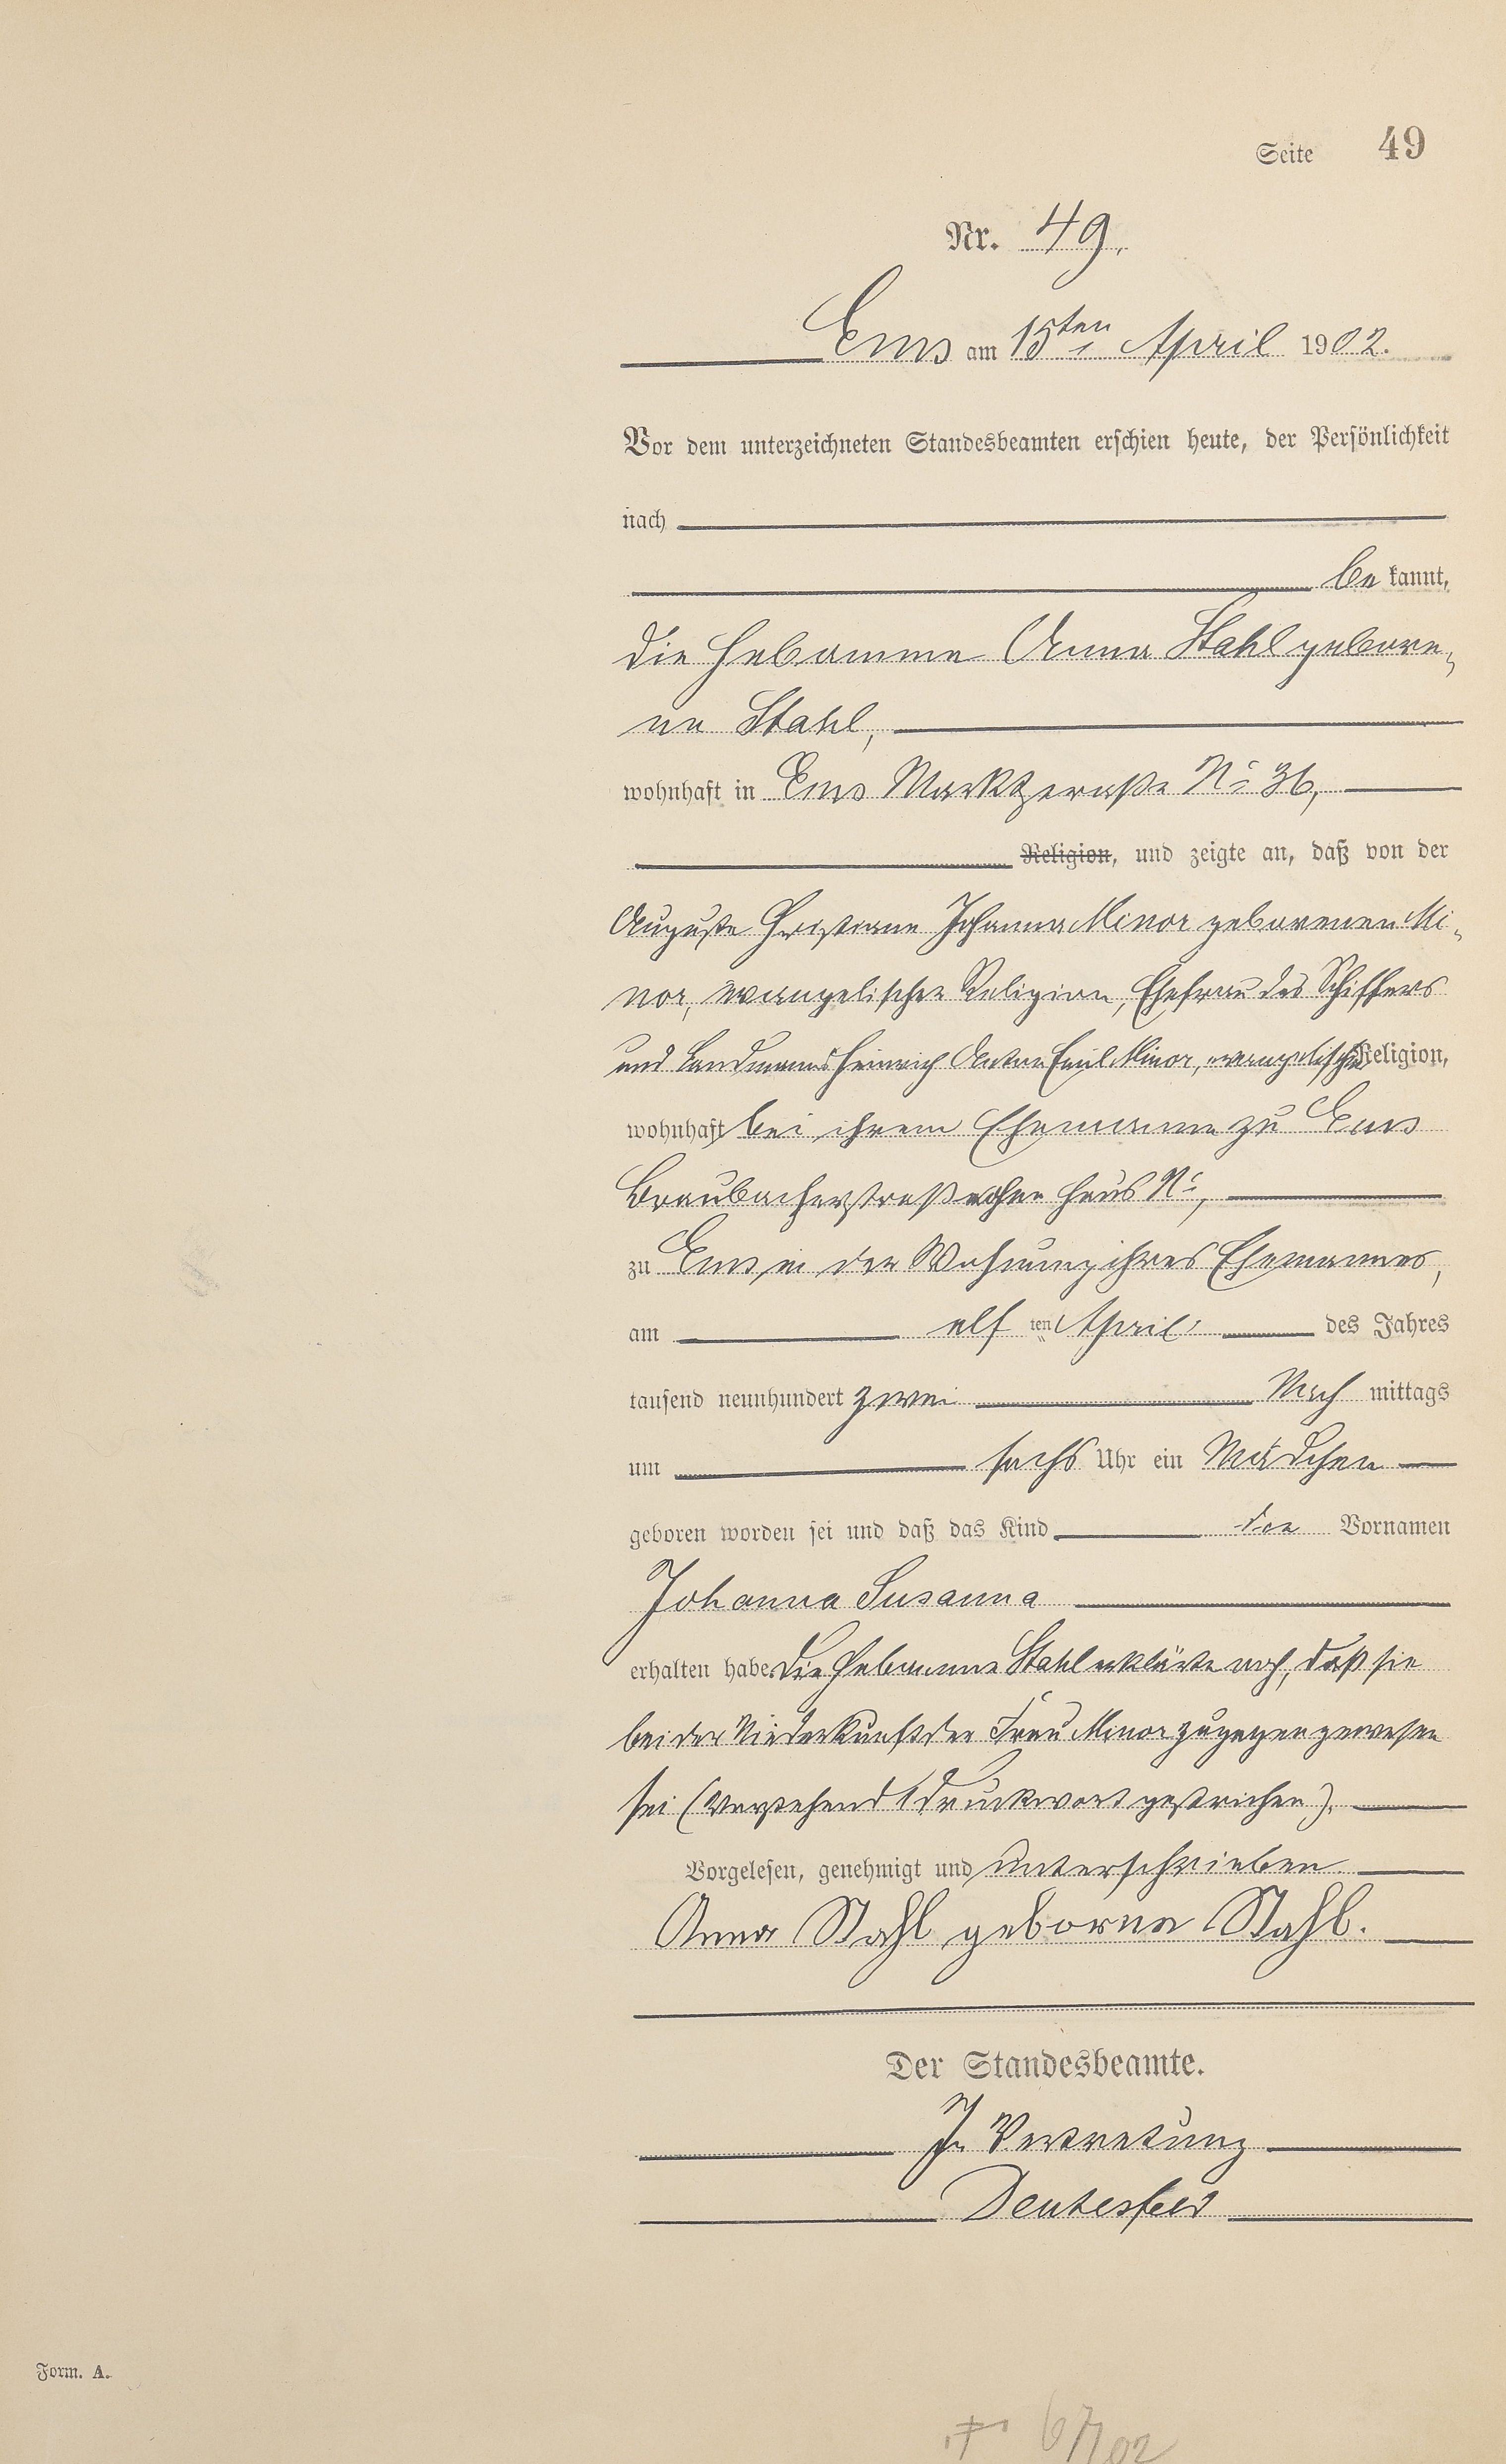 Seite 49
Nr. 49.
Ems am 15ten April 1902.
Vor dem unterzeichneten Standesbeamten erschien heute, der Persönlichkeit
nach
be kannt,
die Hebamme Anna Stahl gebore-
ne Stahl,
wohnhaft in Ems Marktstraße No 36,
Religion, und zeigte an, daß von der
Auguste Christiane Johanna Minor geborenen Mi-
nor, evangelischer Religion, Ehefrau des Schiffers
und Landmanns Heinrich Anton Emil Minor, evangelischer Religion,
wohnhaft bei ihrem Ehemanne zu Ems
Braubacherstraße ohne Haus No,
zu Ems in der Wohnung ihres Ehemannes,
am elf ten April des Jahres
tausend neunhundert zwei Nach mittags
um sechs Uhr ein Mädchen
geboren worden sei und daß das Kind die Vornamen
Johanna Susanna
erhalten habe. Die Hebamme Stahl erklärte noch, daß sie
bei der Niederkunft der Frau Minor zugegen gewesen
sei (Vorstehend 1 Druckwort gestrichen).
Vorgelesen, genehmigt und unterschrieben
Anna Stahl geborne Stahl.
Der Standesbeamte.
In Vertretung
Form. A.